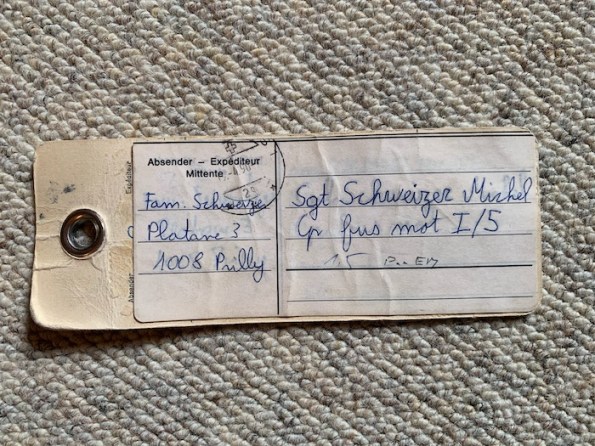 Absender – Expéditeur
Mittente
Fam. Schweizer
Platane 3
1008 Prilly
Sgt Schweizer Michel
Cp fus mot I/5
15
Expéditeur
Absender